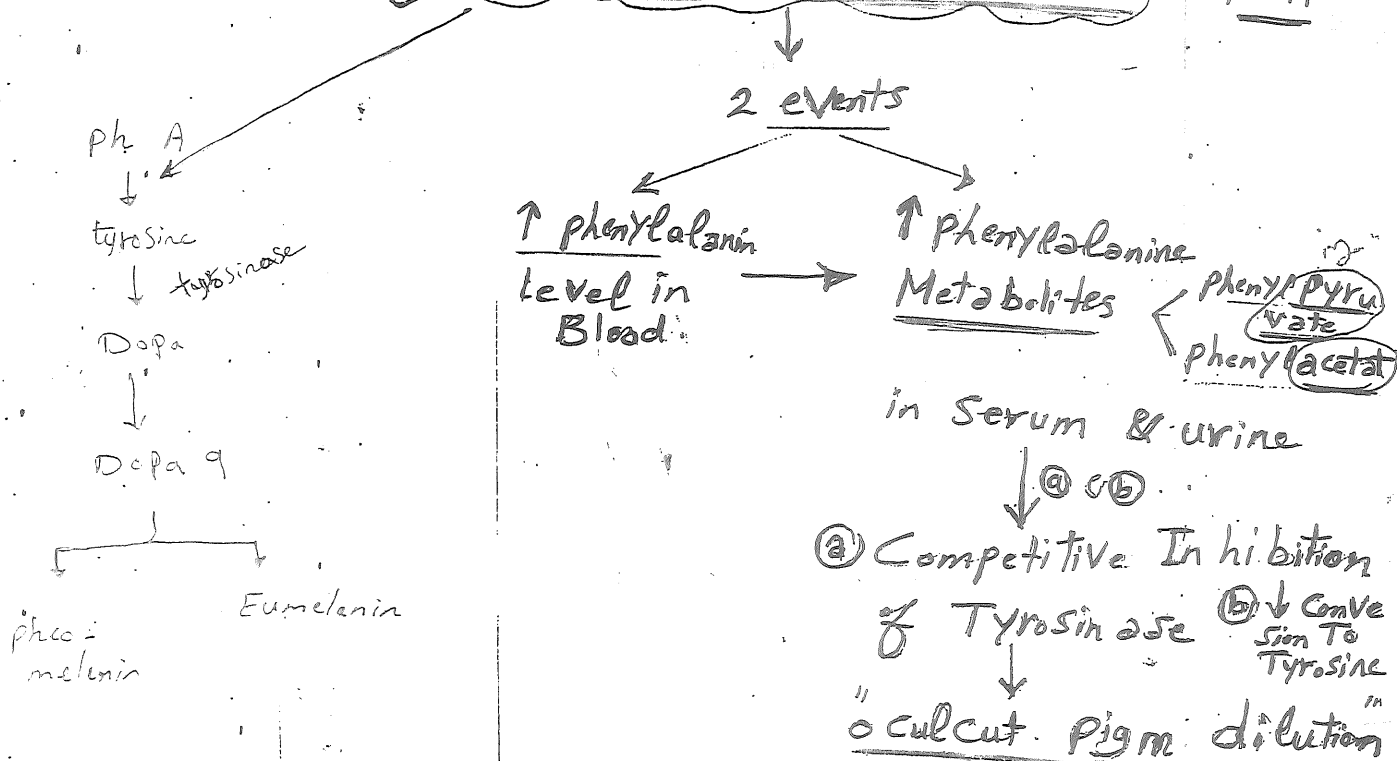 2 events
ph A
tyrosine
tyrosinase
Dopa
Dopa q
Eumelanin
pheo-
melanin
↑ phenylalanin
Level in
Blood
↑ phenylalanine
Metabolites
phenylpyru
vate
phenylacetat
in Serum & urine
ⓐ ⓑ
ⓐ Competitive Inhibition
of Tyrosinase
ⓑ ↓ Conve
sion To
Tyrosine
"oculcut. pigm dilution"